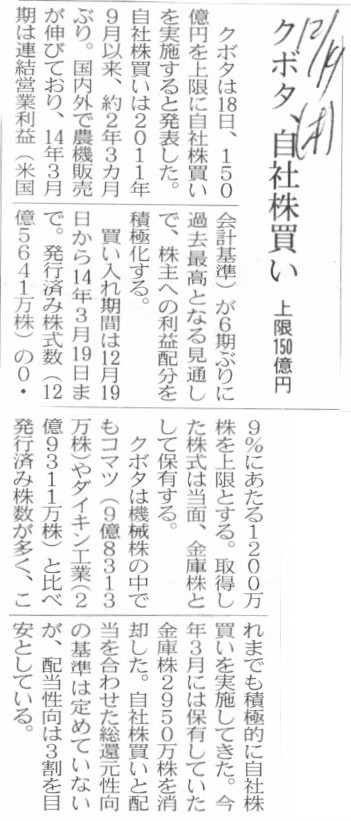 12/19
(木)
クボタ、自社株買い
上限150億円
クボタは18日、150
億円を上限に自社株買い
を実施すると発表した。
自社株買いは2011年
9月以来、約2年3カ月
ぶり。国内外で農機販売
が伸びており、14年3月
期は連結営業利益(米国
会計基準)が6期ぶりに
過去最高となる見通し
で、株主への利益配分を
積極化する。
買い入れ期間は12月19
日から14年3月19日ま
で。発行済み株式数(12
億5641万株)の0・
9%にあたる1200万
株を上限とする。取得し
た株式は当面、金庫株と
して保有する。
クボタは機械株の中で
もコマツ(9億8313
万株)やダイキン工業(2
億9311万株)と比べ
発行済み株数が多く、こ
れまでも積極的に自社株
買いを実施してきた。今
年3月には保有していた
金庫株2950万株を消
却した。自社株買いと配
当を合わせた総還元性向
の基準は定めていない
が、配当性向は3割を目
安としている。